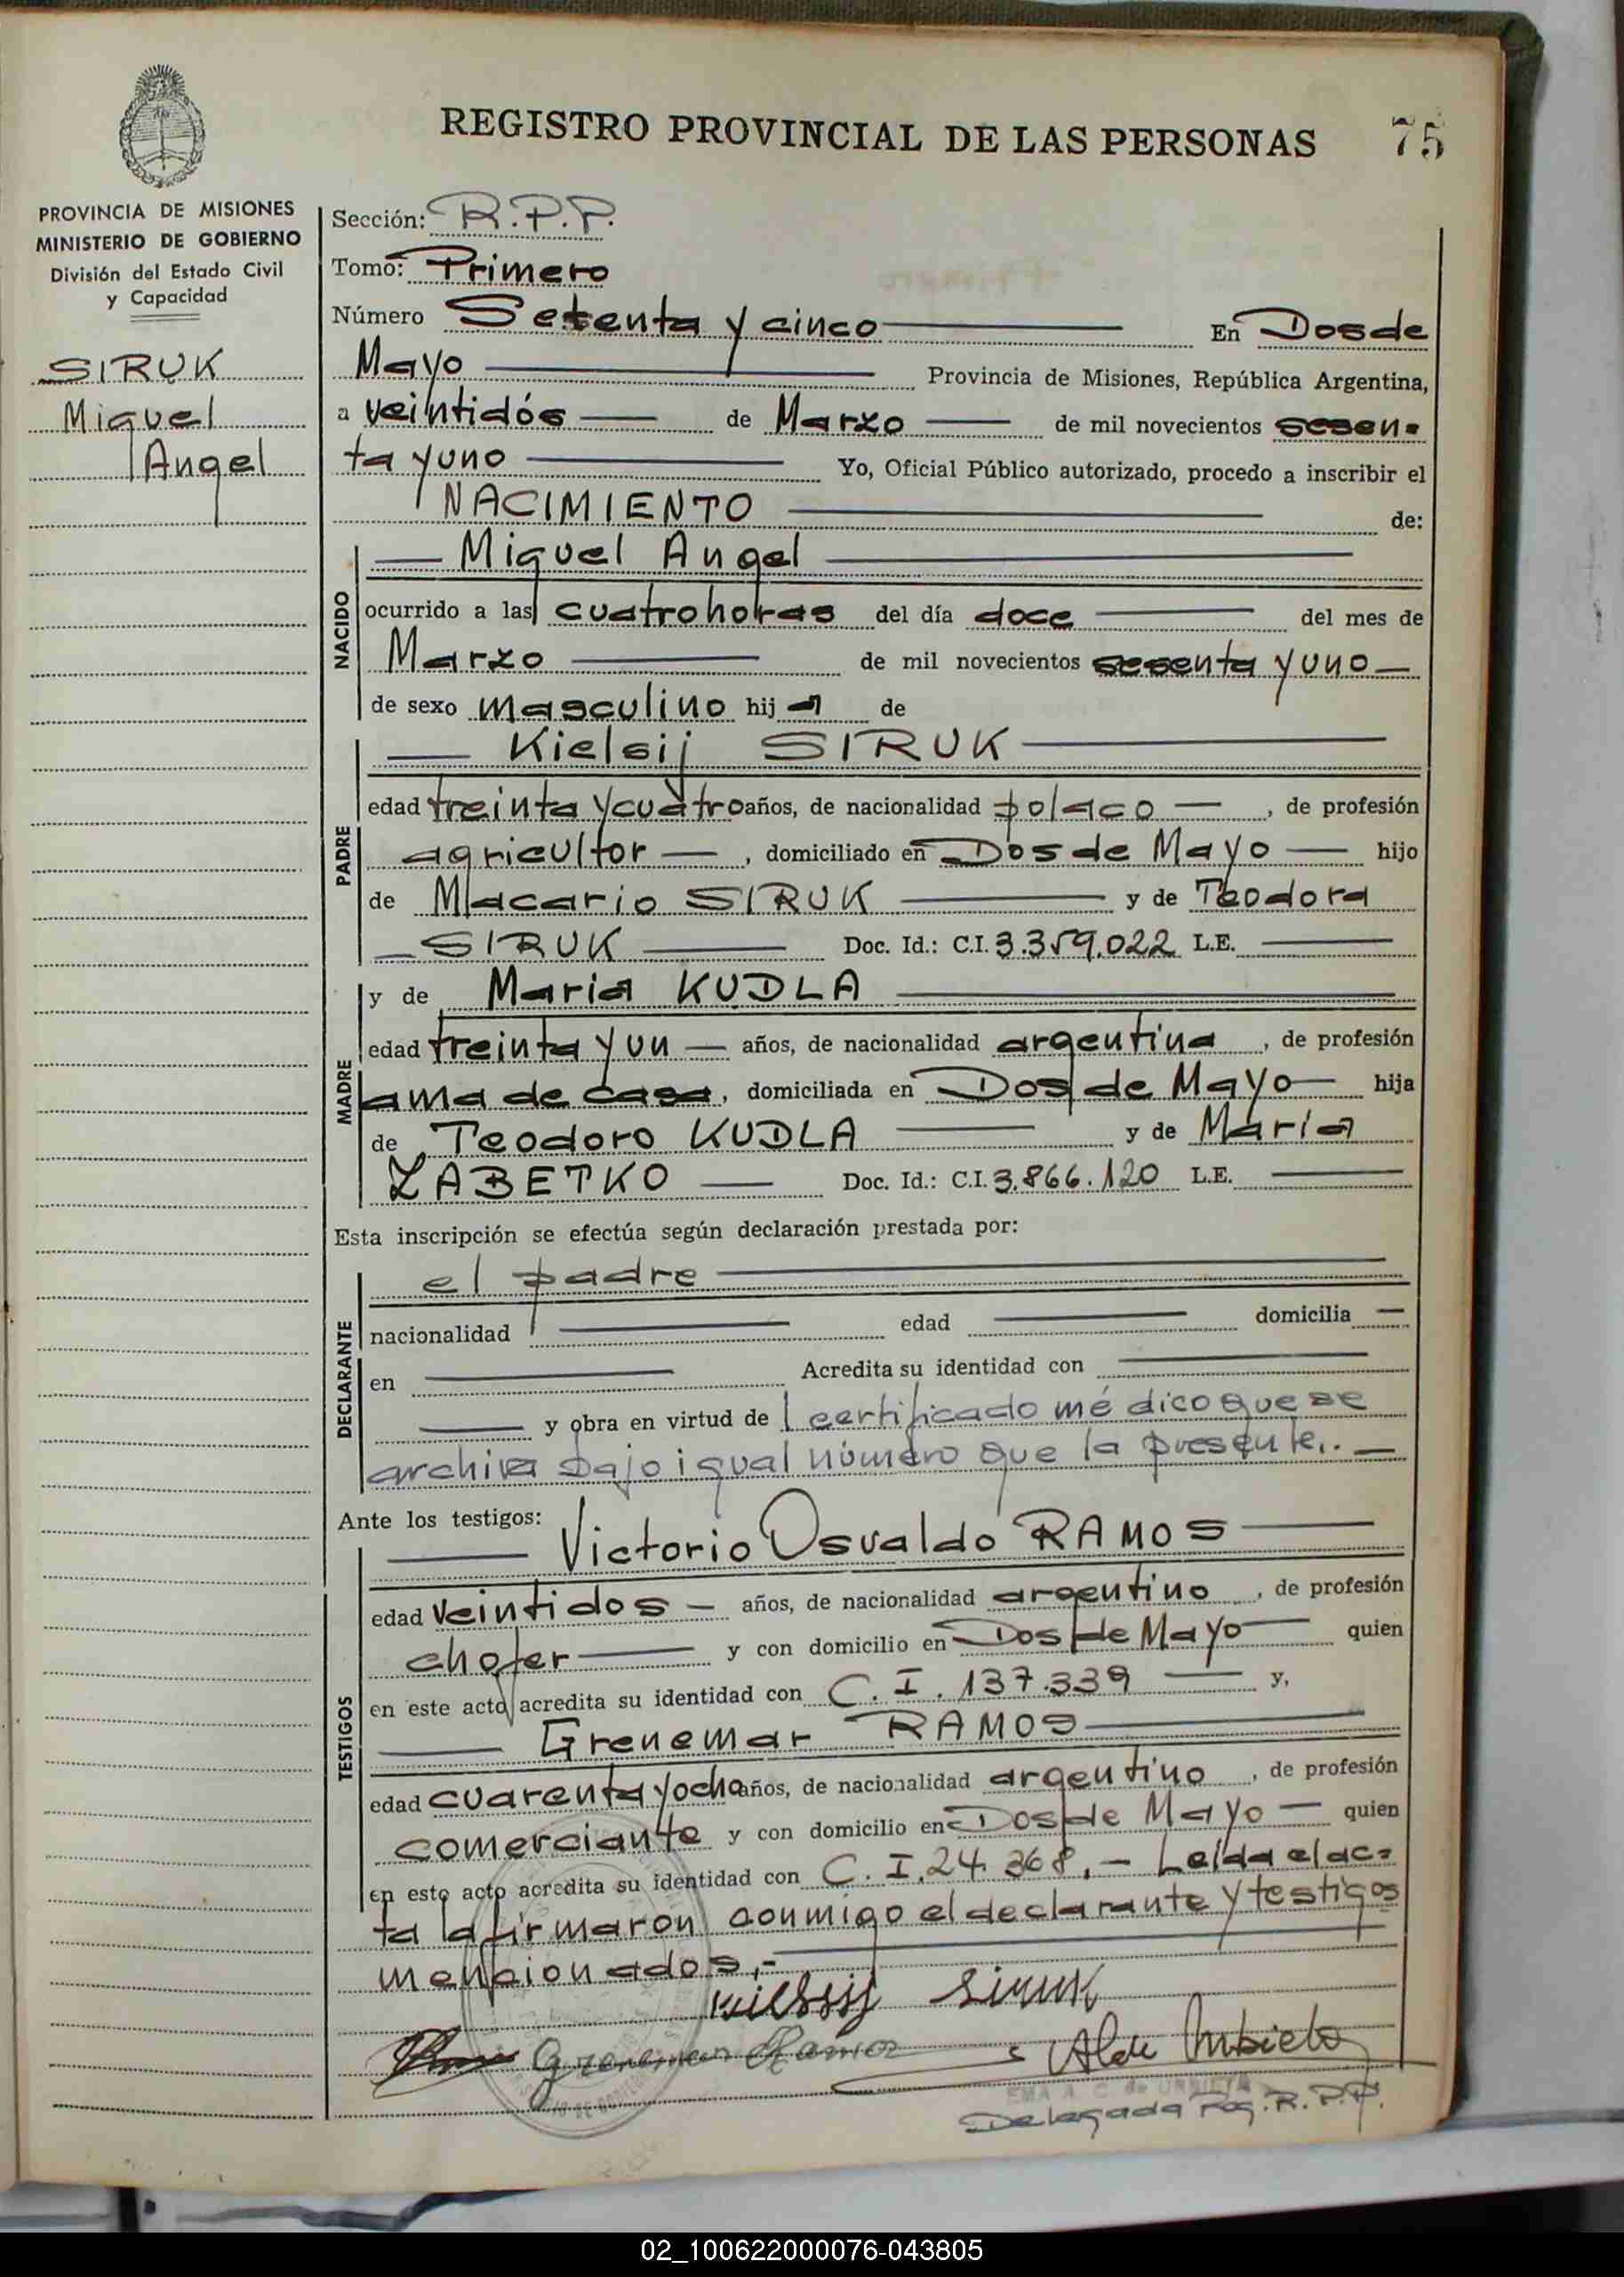 REGISTRO PROVINCIAL DE LAS PERSONAS 75
PROVINCIA DE MISIONES
MINISTERIO DE GOBIERNO
División del Estado Civil
y Capacidad
SIRUK
Miguel
Angel
Sección: R.P.P.
Tomo: Primero
Número Setenta y cinco En Dos de
Mayo Provincia de Misiones, República Argentina,
a veintidós de Marzo de mil novecientos sesen-
ta y uno Yo, Oficial Público autorizado, procedo a inscribir el
NACIMIENTO de:
NACIDO
Miguel Angel
ocurrido a las cuatro horas del día doce del mes de
Marzo de mil novecientos sesenta y uno
de sexo masculino hij o de
PADRE
Kielsij SIRUK
edad treinta y cuatro años, de nacionalidad polaco, de profesión
agricultor, domiciliado en Dos de Mayo hijo
de Macario SIRUK y de Teodora
SIRUK Doc. Id.: C.I. 3.359.022 L.E.
MADRE
y de Maria KUDLA
edad treinta y un años, de nacionalidad argentina, de profesión
ama de casa, domiciliada en Dos de Mayo hija
de Teodoro KUDLA y de María
ZABETKO Doc. Id.: C.I. 3.866.120 L.E.
Esta inscripción se efectúa según declaración prestada por:
DECLARANTE
el padre
nacionalidad edad domicilia
en Acredita su identidad con
y obra en virtud de l certificado médico que se
archiva bajo igual número que la presente.-
Ante los testigos:
TESTIGOS
Victorio Osvaldo RAMOS
edad veintidos años, de nacionalidad argentino, de profesión
chofer y con domicilio en Dos de Mayo quien
en este acto acredita su identidad con C.I. 137.339 y,
Grenemar RAMOS
edad cuarenta y ocho años, de nacionalidad argentino, de profesión
comerciante y con domicilio en Dos de Mayo quien
en este acto acredita su identidad con C.I. 24.368.- Leída el ac-
ta la firmaron conmigo el declarante y testigos
mencionados.-
Kielsij Siruk
Grenemar Ramos
EMA A. C. de URBIETA
Delegada Reg. R.P.P.
02_100622000076-043805